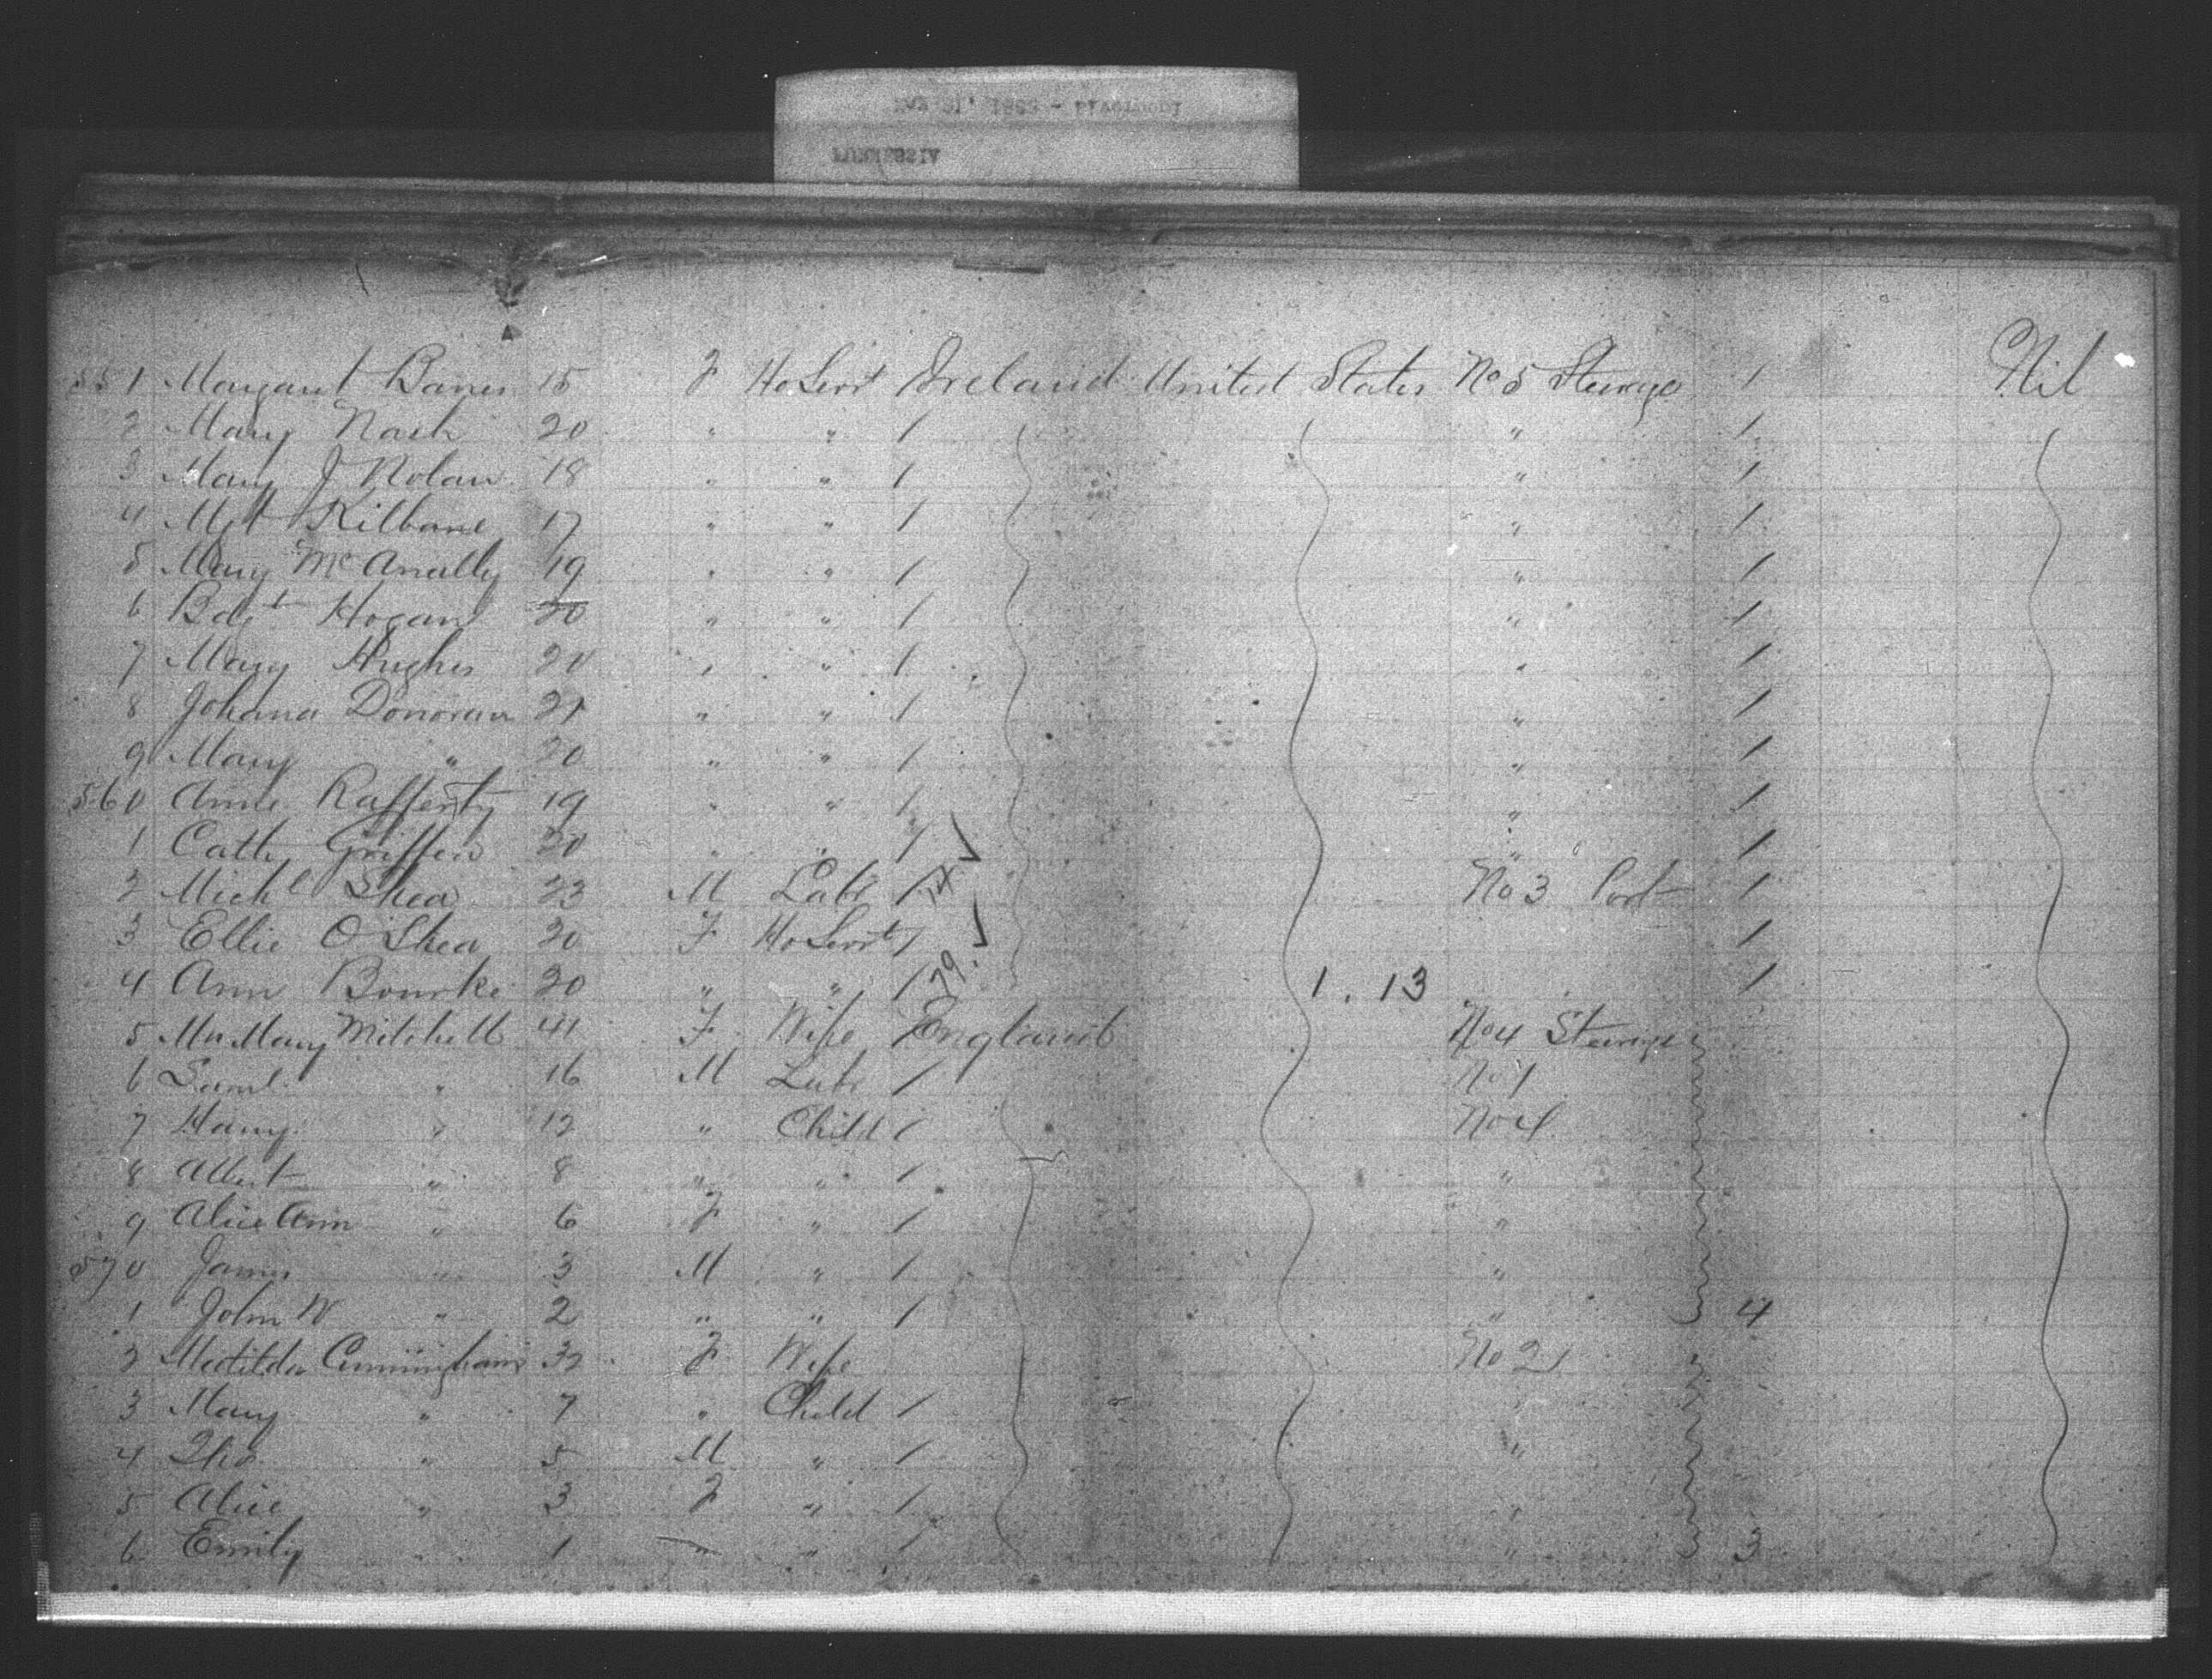 551 Margaret Barnes 15 F Ho Servt / Ireland United States No 5 Steerage 1 Nil
2 Mary Nash 20 " " / " 1
3 Mary J Nolan 18 " " / " 1
4 Mgt Kilbane 17 " " / " 1
5 Mary McAnally 19 " " / " 1
6 Bdgt Hogan 20 " " / " 1
7 Mary Hughes 20 " " / " 1
8 Johana Donovan 21 " " / " 1
9 Mary " 20 " " / " 1
560 Anne Rafferty 19 " " / " 1
1 Cath Griffen 20 " " / " 1
2 Michl Shea 23 M Labr / 14. No 3 Port 1
3 Ellie O'Shea 20 F Ho Servt / 1
4 Ann Bourke 20 " " / 29. 1.13 " 1
5 Mrs Mary Mitchell 41 F Wife / England No 4 Steerage
6 Saml " 16 M Labr / No 1
7 Harry " 12 " Child / No 4
8 Albert " 8 " " / "
9 Alice Ann " 6 F " / "
570 James " 3 M " / "
1 John W " 2 " " / " 4
2 Matilda Cunningham 32 F Wife No 2
3 Mary " 7 " Child / "
4 Tho " 5 M " / "
5 Alice " 3 F " / "
6 Emily " 1 " " / " 3